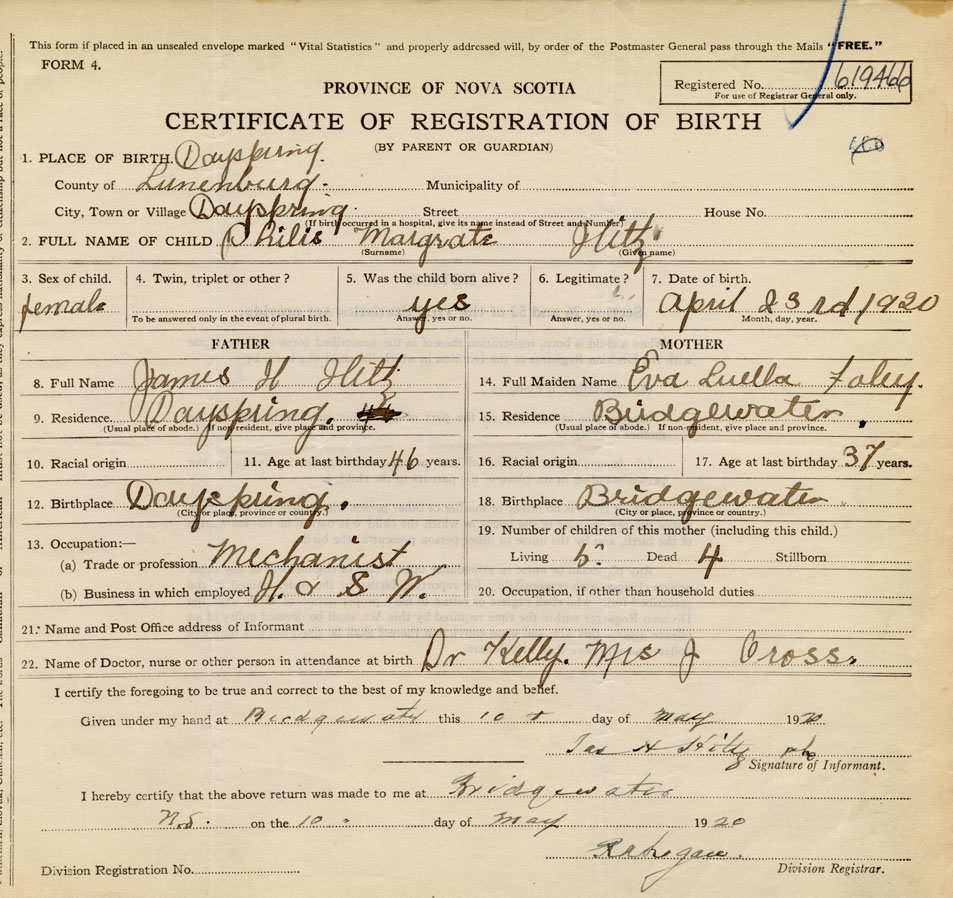 This form if placed in an unsealed envelope marked "Vital Statistics" and properly addressed will, by order of the Postmaster General pass through the Mails "FREE."
FORM 4.
Registered No. 619466
For use of Registrar General only.
PROVINCE OF NOVA SCOTIA
CERTIFICATE OF REGISTRATION OF BIRTH
(BY PARENT OR GUARDIAN)
1. PLACE OF BIRTH. Dayspring.
County of Lunenburg. Municipality of
City, Town or Village Dayspring. Street House No.
(If birth occurred in a hospital, give its name instead of Street and Number)
2. FULL NAME OF CHILD Philis Margrate Hitz
(Surname) (Given name)
3. Sex of child. 4. Twin, triplet or other? 5. Was the child born alive? 6. Legitimate? 7. Date of birth.
female yes April 23rd 1920
To be answered only in the event of plural birth. Answer, yes or no. Answer, yes or no. Month, day, year.
FATHER MOTHER
8. Full Name James H Hitz 14. Full Maiden Name Eva Luella Foley.
9. Residence. Dayspring. 15. Residence Bridgewater
(Usual place of abode.) If non-resident, give place and province. (Usual place of abode.) If non-resident, give place and province.
10. Racial origin 11. Age at last birthday 46 years. 16. Racial origin 17. Age at last birthday 37 years.
12. Birthplace Dayspring. 18. Birthplace Bridgewater
(City or place, province or country.) (City or place, province or country.)
13. Occupation:— 19. Number of children of this mother (including this child.)
(a) Trade or profession Mechanist Living 5 Dead 4 Stillborn
(b) Business in which employed H. & S W. 20. Occupation, if other than household duties
21. Name and Post Office address of Informant
22. Name of Doctor, nurse or other person in attendance at birth Dr Kelly. Mrs J Cross.
I certify the foregoing to be true and correct to the best of my knowledge and belief.
Given under my hand at Bridgewater this 10 day of May 1920
Jas H Hitz
Signature of Informant.
I hereby certify that the above return was made to me at Bridgewater
N.S. on the 10 " day of May 1920
Division Registration No. Division Registrar.